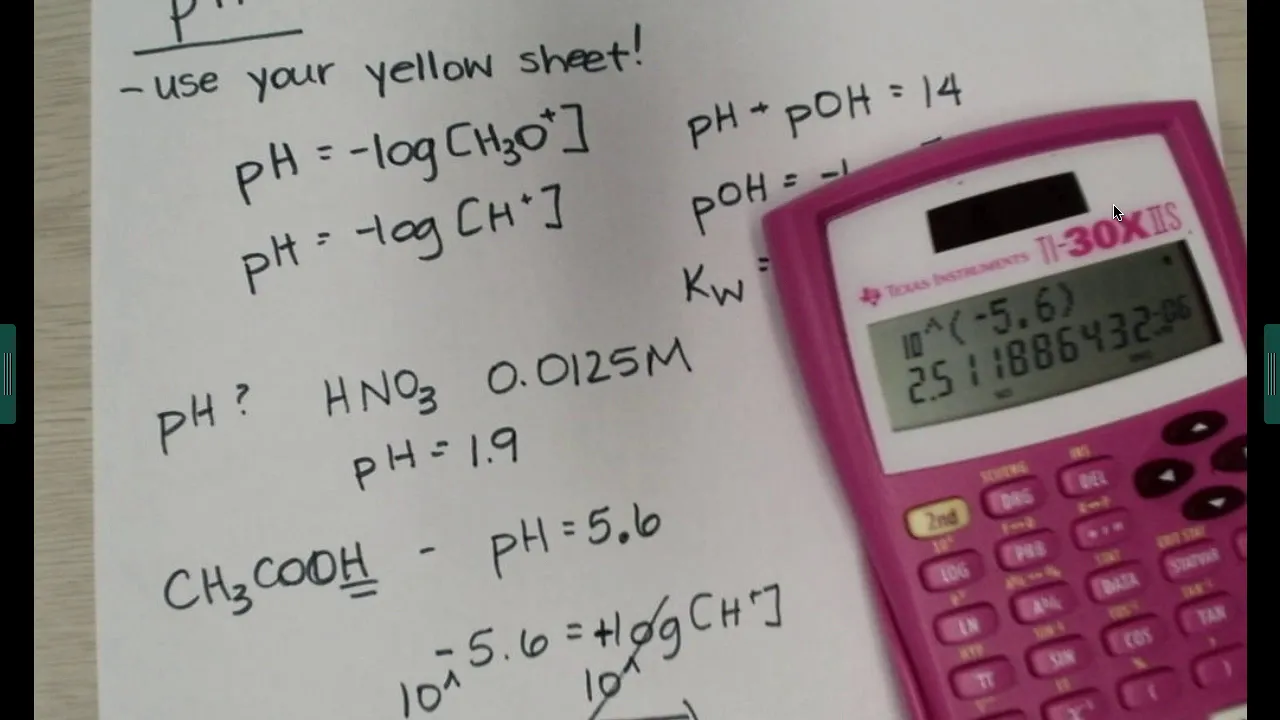 pH
- use your yellow sheet!
pH = -log [H₃O⁺]
pH = -log [H⁺]
pH + pOH = 14
pOH = -l
Kw =
pH? HNO₃ 0.0125M
pH = 1.9
CH₃COOH - pH = 5.6
-5.6 = +log [H⁺]
10^ 10^
TEXAS INSTRUMENTS TI-30X IIS
10^(-5.6)
2.511886432-06
2nd
DRG
DEL
LOG
PRB
LN
A b/c
DATA
STATVAR
π
SIN
COS
TAN
(
)